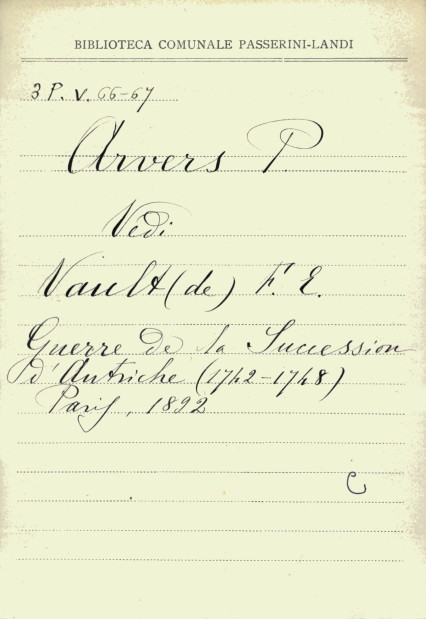 BIBLIOTECA COMUNALE PASSERINI-LANDI
3 P. V. 66-67
Arvers P.
Vedi
Vault (de) F. E.
Guerre de la Succession
d'Autriche (1742-1748)
Paris, 1892
C